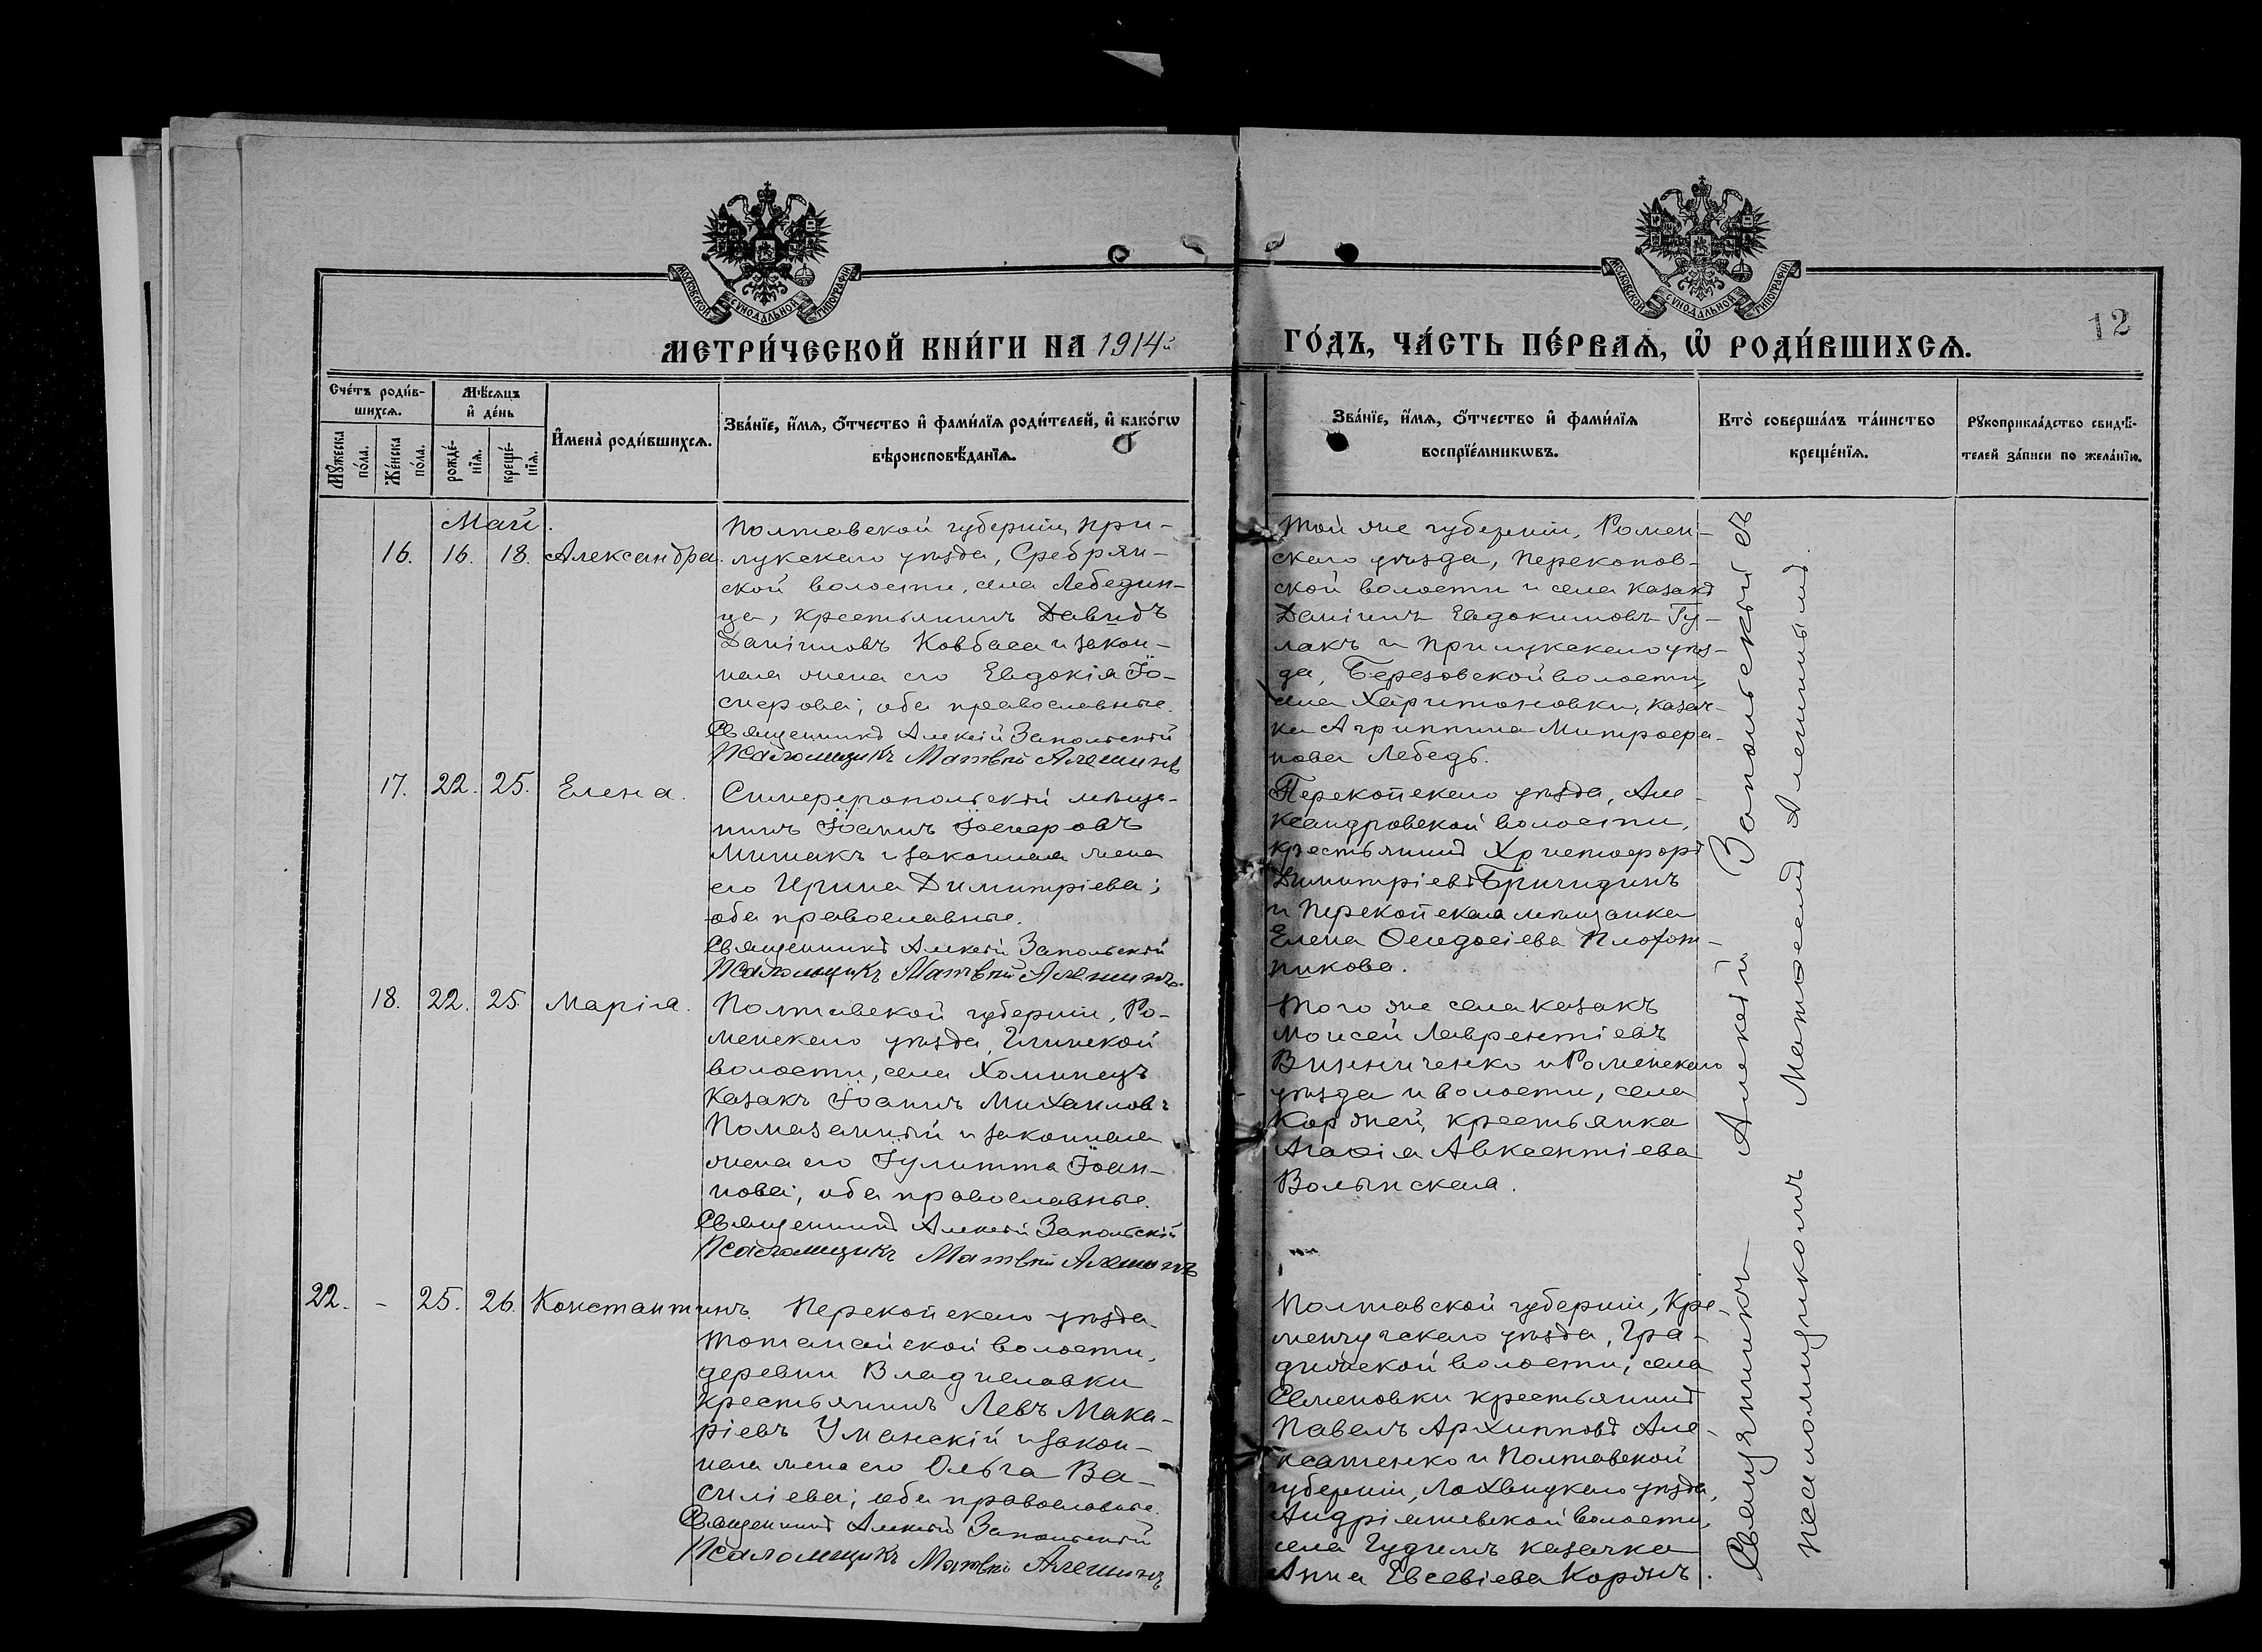 МОСКОВСКОЙ СѴНОДАЛЬНОЙ ТИПОГРАФІИ
МОСКОВСКОЙ СѴНОДАЛЬНОЙ ТИПОГРАФІИ
МЕТРИ́ЧЕСКОЙ КНИ́ГИ НА 1914й
ГО́ДЪ, ЧА́СТЬ ПЕ́РВАѦ, Ѡ҆ РОДИ́ВШИХСѦ.
12
Сче́тъ роди́в-
шихсѧ.
Мꙋ́жеска
по́ла.
Же́нска
по́ла.
Мѣ́сѧцъ
и҆ де́нь
рожде́-
нїѧ.
креще́-
нїѧ.
И҆мена̀ роди́вшихсѧ.
Зва́нїе, и҆́мѧ, ѻ҆́тчество и҆ фами́лїѧ роди́телей, и҆ како́гѡ
вѣроисповѣ́данїѧ.
Зва́нїе, и҆́мѧ, ѻ҆́тчество и҆ фами́лїѧ
воспрїе́мникѡвъ.
Кто̀ соверша́лъ та́инство
креще́нїѧ.
Рꙋкоприкла́дство свидѣ́-
телей за́писи по жела́нїю.
Май.
16. 16. 18. Александра.
Полтавской губерніи, При-
лукскаго уѣзда, Сребрян-
ской волости, села Лебедин-
ца, крестьянинъ Давидъ
Даніиловъ Ковбаса и закон-
ная жена его Евдокія Іо-
сифова; оба православные.
Священникъ Алексій Запольскій
Псаломщикъ Матвѣй Алешинъ
Той же губерніи, Ромен-
скаго уѣзда, Перекопов-
ской волости и села казакъ
Даніилъ Евдокимовъ Гу-
лакъ и Прилукскаго уѣз-
да, Березовской волости,
села Харитоновки, казач-
ка Агриппина Митрофа-
нова Лебедь.
17. 22. 25. Елена.
Симферопольскій мѣща-
нинъ Іоаннъ Іосифовъ
Мишакъ и законная жена
его Ирина Димитріева;
оба православные.
Священникъ Алексій Запольскій
Псаломщикъ Матвѣй Алешинъ.
Перекопскаго уѣзда, Але-
ксандровской волости,
крестьянинъ Христофоръ
Димитріевъ Бригидинъ
и Перекопская мѣщанка
Елена Ѳеодосіева Плот-
никова.
18. 22. 25 Марія.
Полтавской губерніи, Ро-
менскаго уѣзда, Глинской
волости, села Хоминецъ
казакъ Іоаннъ Михаиловъ
Помазанный и законная
жена его Іулитта Іоан-
нова; оба православные.
Священникъ Алексій Запольскій
Псаломщикъ Матвѣй Алешинъ
Того же села казакъ
Моисей Лаврентіевъ
Винниченко и Роменскаго
уѣзда и волости, села
Коржей, крестьянка
Агаѳія Авксентіева
Волынская.
22. - 25. 26. Константинъ.
Перекопскаго уѣзда
Тотанайской волости,
деревни Владиславки
крестьянинъ Левъ Мака-
ріевъ Уманскій и закон-
ная жена его Ольга Ва-
силіева; оба православные.
Священникъ Алексій Запольскій
Псаломщикъ Матвѣй Алешинъ
Полтавской губерніи, Кре-
менчугскаго уѣзда, Гра-
дижской волости, села
Семеновки крестьянинъ
Павелъ Архипповъ Але-
ксатенко и Полтавской
губерніи, Лохвицкаго уѣзда,
Андріяшевской волости,
села Гудимъ казачка
Анна Евсевіева Коржъ.
Священникъ Алексій Запольскій съ
псаломщикомъ Матѳеемъ Алешинымъ.